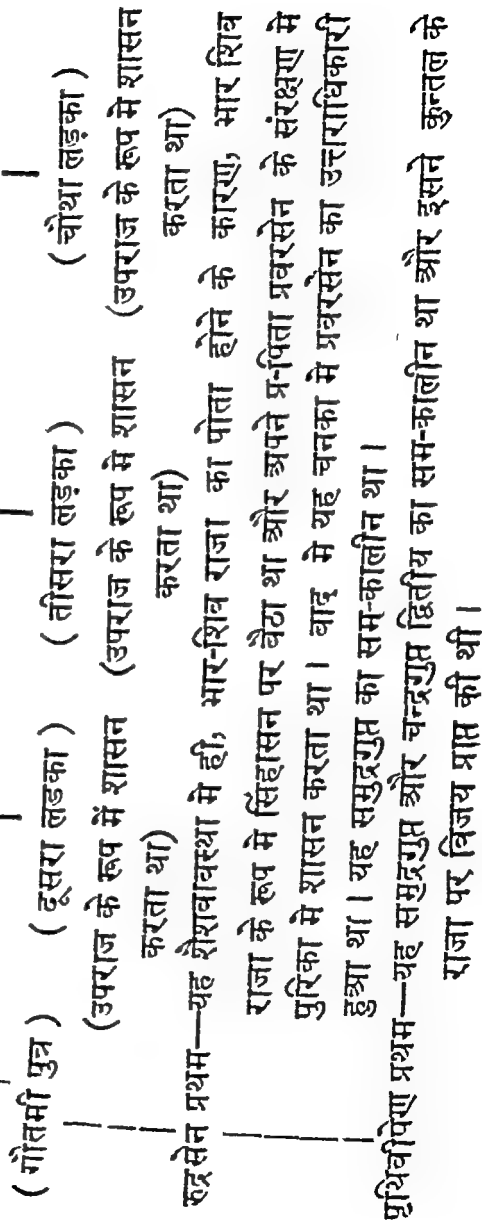 ( गौतमी पुत्र ) ( दूसरा लडका ) ( तीसरा लड़का ) ( चौथा लड़का )
(उपराज के रूप में शासन (उपराज के रूप मे शासन (उपराज के रूप मे शासन
करता था) करता था) करता था)
रुद्रसेन प्रथम—यह शैशवावस्था मे ही, भार-शिव राजा का पोता होने के कारण, भार शिव
राजा के रूप मे सिंहासन पर बैठा था और अपने प्र-पिता प्रवरसेन के संरक्षण मे
पुरिका मे शासन करता था। बाद मे यह चनका मे प्रवरसेन का उत्तराधिकारी
हुआ था। यह समुद्रगुप्त का सम-कालीन था।
पृथिवीषेण प्रथम—यह समुद्रगुप्त और चन्द्रगुप्त द्वितीय का सम-कालीन था और इसने कुन्तल के
राजा पर विजय प्राप्त की थी।